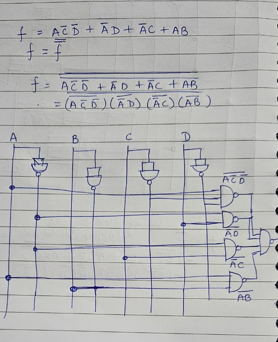 f = AC̅D̅ + A̅D + A̅C + AB
f = f̿
f = \overline{\overline{AC̅D̅ + A̅D + A̅C + AB}}
= (\overline{AC̅D̅}) (\overline{A̅D}) (\overline{A̅C}) (\overline{AB})
A B C D
\overline{AC̅D̅}
\overline{A̅D}
\overline{A̅C}
\overline{AB}